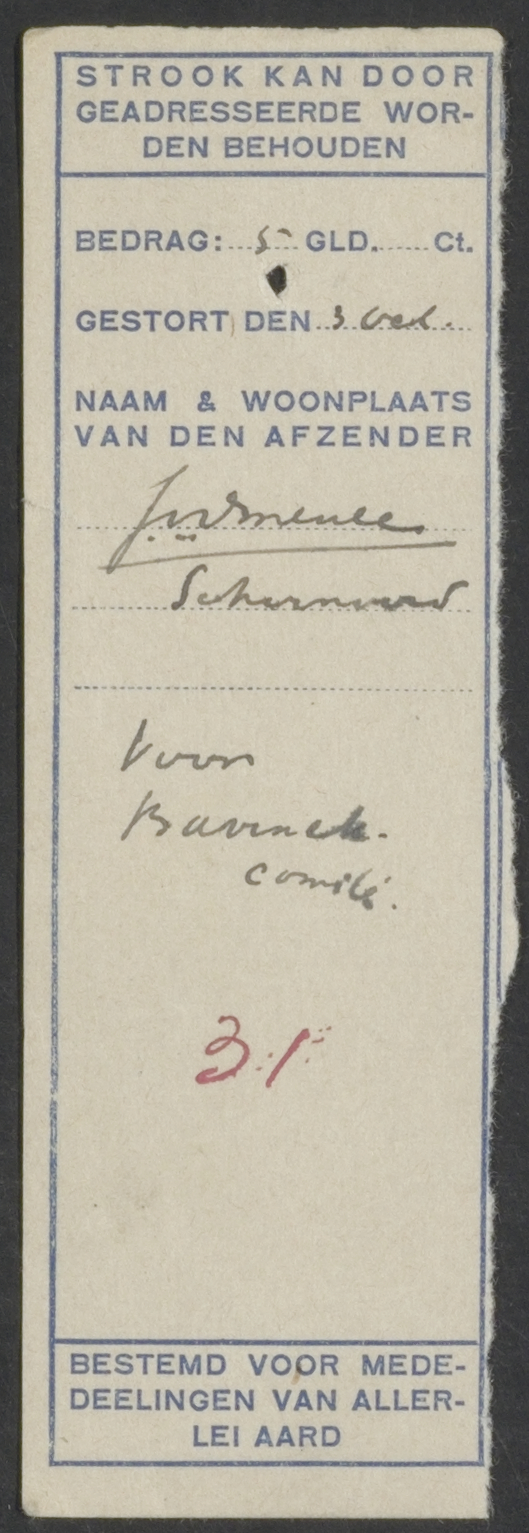 STROOK KAN DOOR
GEADRESSEERDE WOR-
DEN BEHOUDEN
BEDRAG: 5 GLD. Ct.
GESTORT DEN 3 Oct.
NAAM & WOONPLAATS
VAN DEN AFZENDER
Voor
Bavinck-
comité.
31
BESTEMD VOOR MEDE-
DEELINGEN VAN ALLER-
LEI AARD